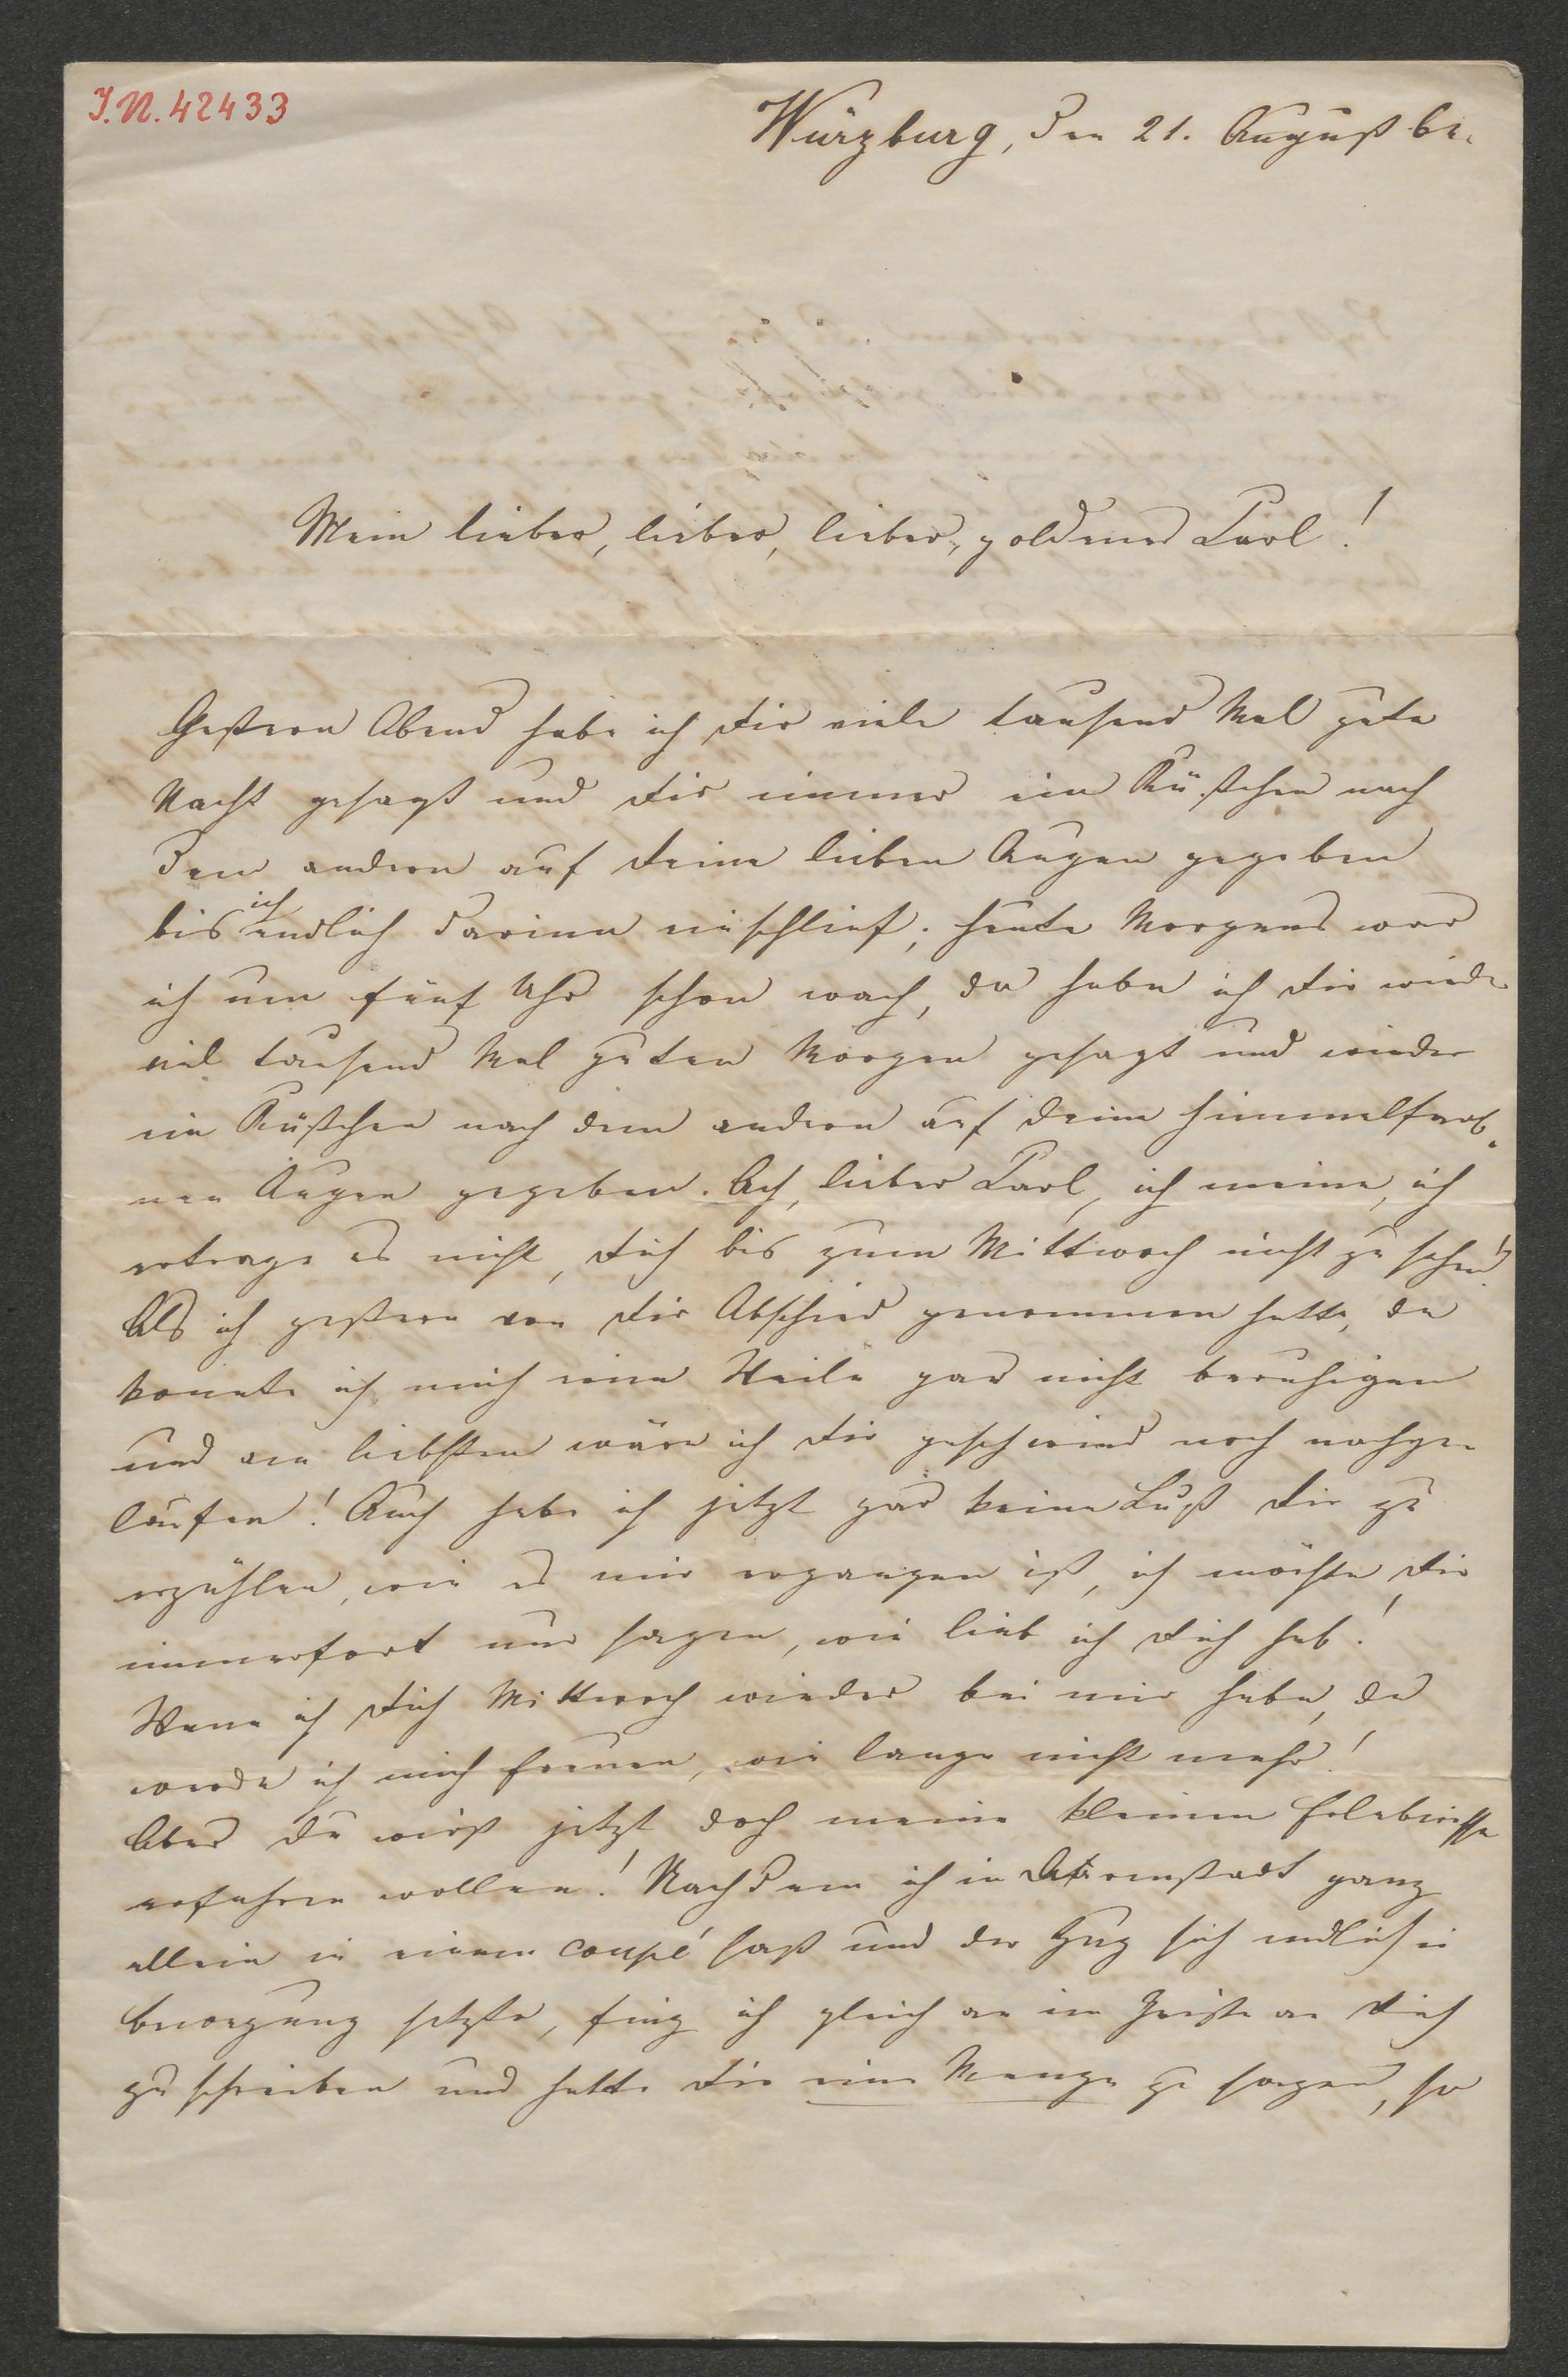 I.N. 42433
Würzburg, den 21. August 62.
Mein lieber, lieber, lieber, goldener Carl!
Gestern Abend habe ich Dir viele tausend Mal gute
Nacht gesagt und Dir immer ein Küßchen nach
dem andern auf Deine lieben Augen gegeben
bis ich endlich darinn einschlief; heute Morgens war
ich um fünf Uhr schon wach, da habe ich Dir wieder
viel tausend Mal guten Morgen gesagt und wieder
ein Küßchen nach dem andern auf deine himmelfarb-
nen Augen gegeben. Ach, lieber Carl, ich meine, ich
ertrage es nicht, Dich bis zum Mittwoch nicht zu sehen!
Als ich gestern von Dir Abschied genommen hatte, da
konnte ich mich eine Weile gar nicht beruhigen
und am liebsten wäre ich Dir geschwind noch nachge-
laufen! Auch habe ich jetzt gar keine Lust Dir zu
erzählen, wie es mir ergangen ist, ich möchte Dir
immerfort nur sagen, wie lieb ich Dich hab!
Wenn ich Dich Mittwoch wieder bei mir habe, da
werde ich mich freuen, wie lange nicht mehr!
Aber Du wirst jetzt doch meine kleinen Erlebnisse
erfahren wollen! Nachdem ich in Darmstadt ganz
allein in einem coupé saß und der Zug sich endlich in
Bewegung setzte, fing ich gleich an im Geiste an Dich
zu schreiben und hatte Dir eine Menge zu sagen, so